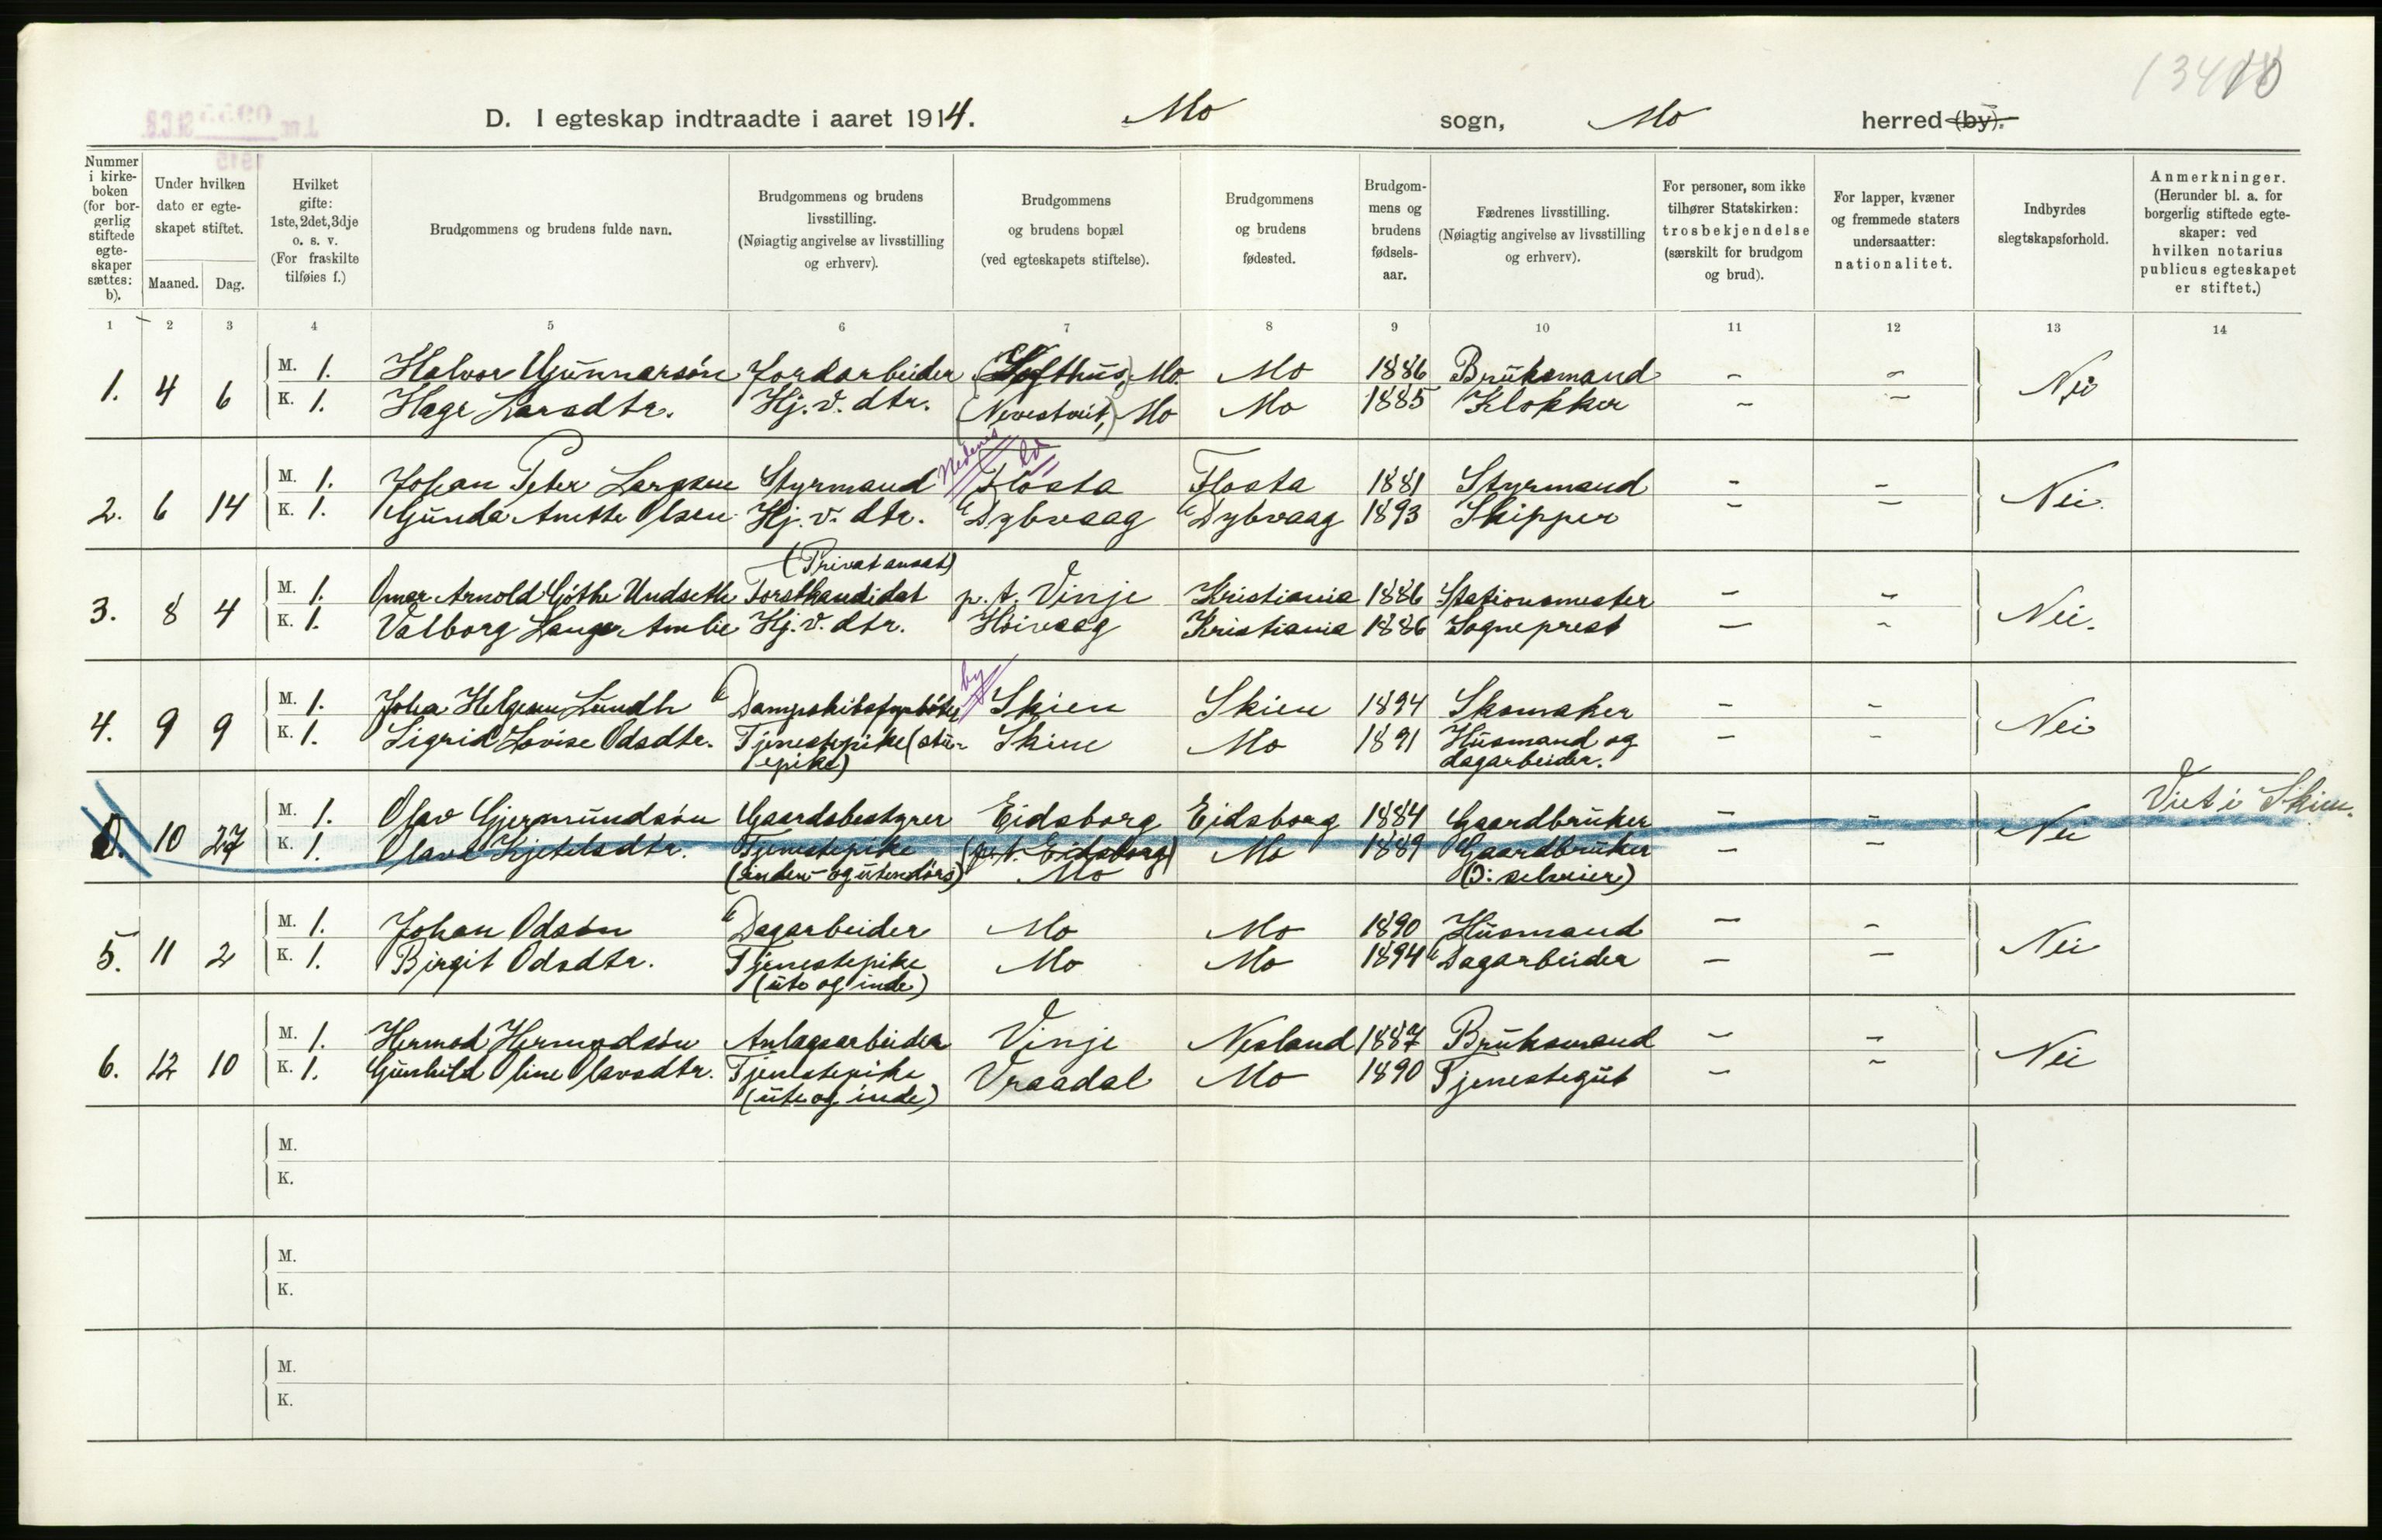 13410
D. I egteskap indtraadte i aaret 1914. Mo sogn, Mo herred (by).
Nummer i kirkeboken (for borgerlig stiftede egteskaper sættes: b).
Under hvilken dato er egteskapet stiftet.
Maaned. Dag.
Hvilket gifte: 1ste, 2det, 3dje o. s. v. (For fraskilte tilføies f.)
Brudgommens og brudens fulde navn.
Brudgommens og brudens livsstilling. (Nøiagtig angivelse av livsstilling og erhverv).
Brudgommens og brudens bopæl (ved egteskapets stiftelse).
Brudgommens og brudens fødested.
Brudgommens og brudens fødselsaar.
Fædrenes livsstilling. (Nøiagtig angivelse av livsstilling og erhverv).
For personer, som ikke tilhører Statskirken: trosbekjendelse (særskilt for brudgom og brud).
For lapper, kvæner og fremmede staters undersaatter: nationalitet.
Indbyrdes slegtskapsforhold.
Anmerkninger. (Herunder bl. a. for borgerlig stiftede egteskaper: ved hvilken notarius publicus egteskapet er stiftet.)
1 2 3 4 5 6 7 8 9 10 11 12 13 14
1. 4 6 M. 1. Halvor Gunnarsön Jordarbeider (Lofthus) Mo. Mo 1886 Bruksmand - - Nei
K. 1. Hæge Larsdtr. Hj. v. dtr. (Nevestveit,) Mo Mo 1885 Klokker - -
Nedenes Ld
2. 6 14 M. 1. Johan Peter Larssen Styrmand Flosta Flosta 1881 Styrmand - - Nei.
K. 1. Gunda Anette Olsen Hj. v. dtr. Dybvaag Dybvaag 1893 Skipper - -
(Privat ansat)
3. 8 4 M. 1. Omar Arnold Göthe Undseth Forstkandidat p. t. Vinje Kristiania 1886 Stationsmester - - Nei.
K. 1. Valborg Lange Amlie Hj. v. dtr. Höivaag Kristiania 1886 Sogneprest - -
by
4. 9 9 M. 1. Johan Helgesen Lundh Dampskibsfyrböter Skien Skien 1894 Skomaker - - Nei
K. 1. Sigrid Lovise Odsdtr. Tjenestepike (stu- Skien Mo 1891 Husmand og
epike) dagarbeider. - -
10 27 M. 1. Olav Gjermundsön Gaardsbestyrer Eidsborg Eidsborg 1884 Gaardbruker - - Nei Viet i Skien.
K. 1. Olava Kjetelsdtr. Tjenestepike (p. t. Eidsborg) Mo 1889 Gaardbruker - -
(inden- og utendörs) Mo (ɔ: selveier)
5. 11 2 M. 1. Johan Odsön Dagarbeider Mo Mo 1890 Husmand - - Nei
K. 1. Birgit Odsdtr. Tjenestepike Mo Mo 1894 Dagarbeider - -
(ute og inde)
6. 12 10 M. 1. Hermod Hermodsön Anlægsarbeider Vinje Nesland 1887 Bruksmand - - Nei
K. 1. Gunhild Oline Olavsdtr. Tjenestepike Vraadal Mo 1890 Tjenestegut - -
(ute og inde)
M.
K.
M.
K.
M.
K.